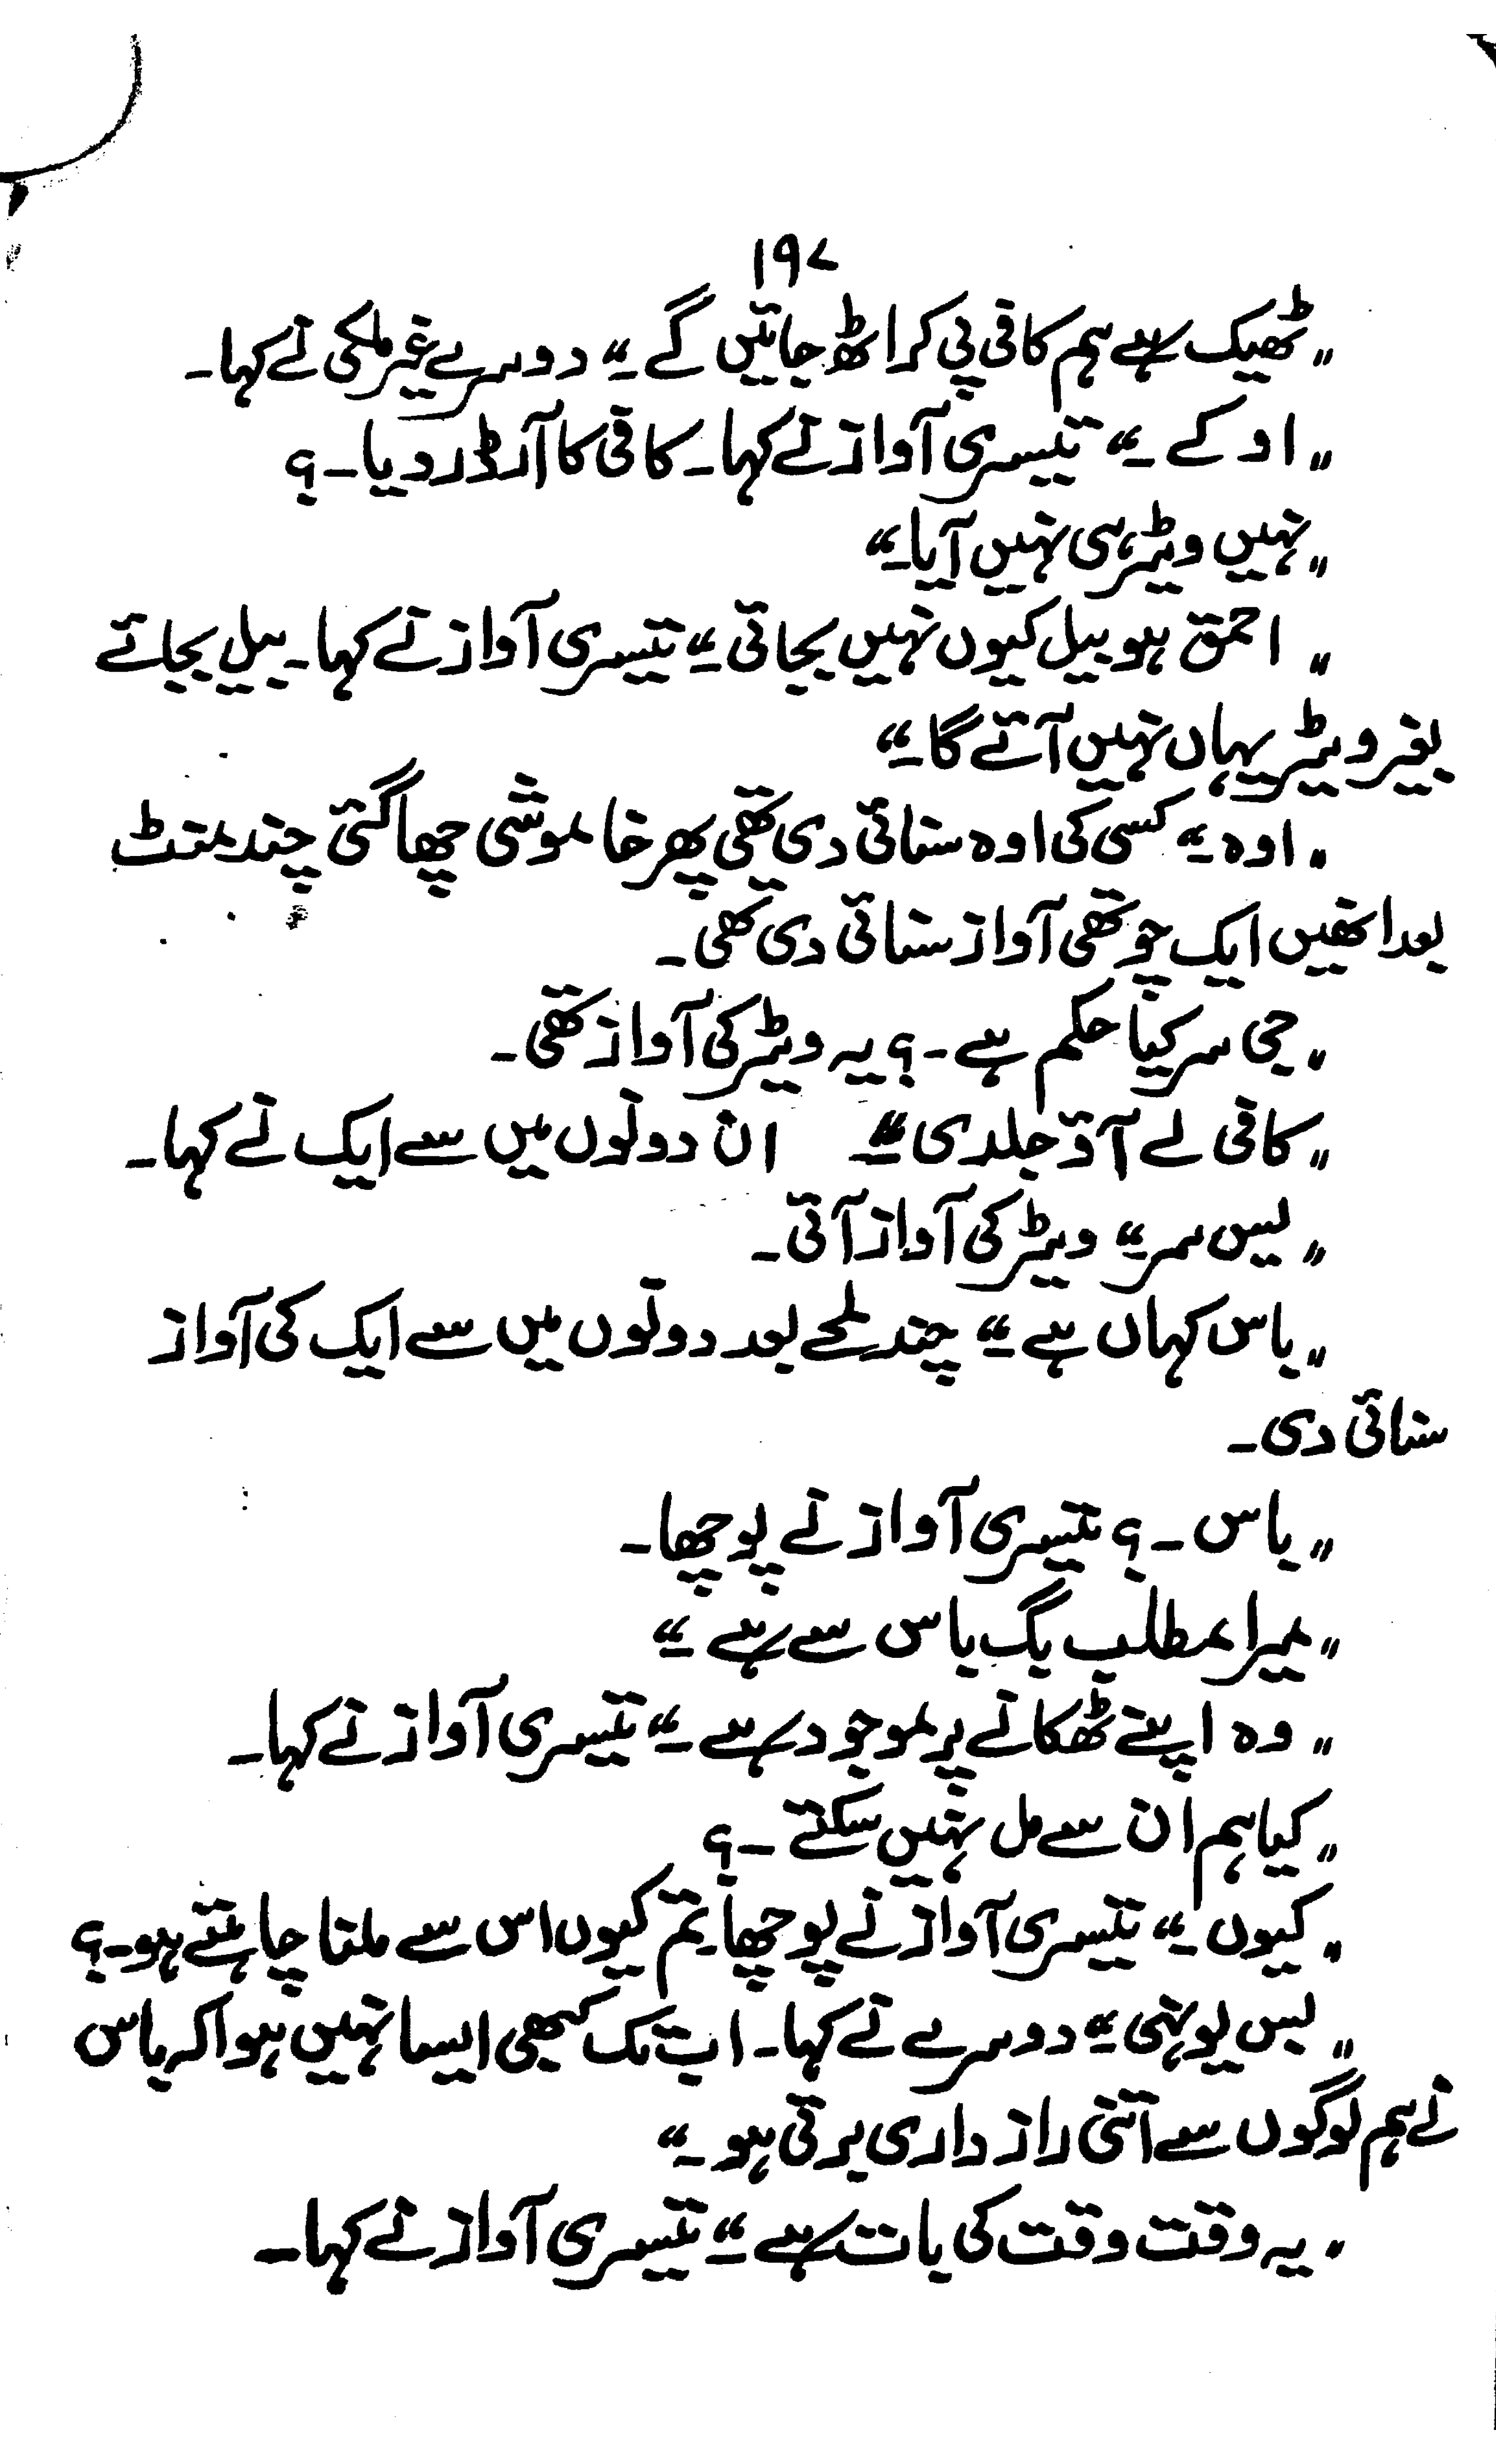 ۱۹۷
"ٹھیک ہے ہم کافی پی کر اٹھ جائیں گے۔" دوسرے غیر ملکی نے کہا۔
"اوکے۔" تیسری آواز نے کہا۔ کافی کا آرڈر دیا۔؟
"نہیں ویٹر ہی نہیں آیا۔"
"احمق ہو بیل کیوں نہیں بجائی۔" تیسری آواز نے کہا۔ بیل بجائے
بغیر ویٹر یہاں نہیں آئے گا۔"
"اوہ۔" کسی کی اوہ سنائی دی تھی پھر خاموشی چھا گئی چند منٹ
بعد انھیں ایک چوتھی آواز سنائی دی تھی۔
"جی سر کیا حکم ہے۔؟ یہ ویٹر کی آواز تھی۔
"کافی لے آؤ جلدی۔" ان دونوں میں سے ایک نے کہا۔
"یس سر۔" ویٹر کی آواز آئی۔
"باس کہاں ہے۔" چند لمحے بعد دونوں میں سے ایک کی آواز
سنائی دی۔
"باس۔؟ تیسری آواز نے پوچھا۔
"میرا مطلب بگ باس سے ہے۔"
"وہ اپنے ٹھکانے پر موجود ہے۔" تیسری آواز نے کہا۔
"کیا ہم ان سے مل نہیں سکتے۔؟
"کیوں۔" تیسری آواز نے پوچھا۔ تم کیوں اس سے ملنا چاہتے ہو۔؟
"بس یونہی۔" دوسرے نے کہا۔ اب تک کبھی ایسا نہیں ہوا کہ باس
نے ہم لوگوں سے اتنی راز داری برتی ہو۔"
"یہ وقت وقت کی بات ہے۔" تیسری آواز نے کہا۔